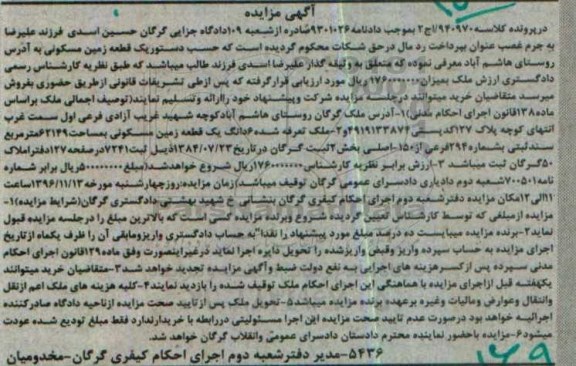 آگهی مزایده
درپرونده کلاسه ۹۴۰۹۷۰/اج۲ بموجب دادنامه ۹۳۰۱۰۳۶صادره ازشعبه ۱۰۹دادگاه جزایی گرگان حسین اسدی فرزند علیرضا
به جرم غصب عنوان بپرداخت رد مال درحق شکات محکوم گردیده است که حسب دستوریک قطعه زمین مسکونی به آدرس
روستای هاشم آباد معرفی نموده که متعلق به وثیقه گذار علیرضا اسدی فرزند طالب میباشد که طبق نظریه کارشناس رسمی
دادگستری ارزش ملک بمیزان ریال مورد ارزیابی قرارگرفته که پس ازطی تشریفات قانونی ازطریق حضوری بفروش
میرسد متقاضیان خرید میتوانند درجلسه مزایده شرکت وپیشنهاد خود راارائه وتسلیم نمایند(توصیف اجمالی ملک براساس
ماده۱۳۸قانون اجرای احکام مدنی)۱-آدرس ملک گرگان روستای هاشم آبادکوچه شهید غریب آزادی فرعی اول سمت غرب
انتهای کوچه پلاک ۱۲۷کدپستی۴۹۱۹۱۳۳۸۷۴و۲-ملک تعرفه شده۶دانگ یک قطعه زمین مسکونی بمساحت۶۲۱۴۹مترمربع
سندثبتی بشماره۲۹۴فرعی از۱۵۰-اصلی بخش۲ثبت گرگان درتاریخ۱۳۸۴/۰۷/۲۳ذیل ثبت۷۲۴۱درصفحه۱۲۷دفتراملاک
۵۰گرگان ثبت میباشد ۳-ارزش برابر نظریه کارشناس ریال شروع خواهدشد(مبلغ ریال برابر شماره
نامه۷۰۰۵۰۱شعبه دوم دادیاری دادسرای عمومی گرگان توقیف میباشد)زمان مزایده:روزچهارشنبه مورخه ۱۳۹۶/۱۱/۱۳ساعت
۱۱الی۱۲مکان مزایده دفترشعبه دوم اجرای احکام کیفری گرگان بنشانی خ شهید بهشتی-دادگستری گرگان(شرایط مزایده)۱-
مزایده ازمبلغی که توسط کارشناس تعیین گردیده شروع وبرنده مزایده کسی است که بالاترین مبلغ را درجلسه مزایده قبول
نماید۲-برنده مزایده میبایست ده درصد مبلغ مورد پیشنهاد را نقدا"به حساب دادگستری واریزومابقی آن را ظرف یکماه ازتاریخ
اجرای مزایده به حساب سپرده واریز وقبض واریزشده را تحویل دایره اجرا نماید درغیراینصورت وفق ماده۱۲۹قانون اجرای احکام
مدنی سپرده پس ازکسرهزینه های اجرایی به نفع دولت ضبط وآگهی مزایده تجدید خواهد شد۳-متقاضیان خرید میتوانند
یکهفته قبل ازاجرای مزایده با هماهنگی این اجرای احکام ملک توقیف شده را بازدید نمایند۴-کلیه هزینه های ملک اعم ازنقل
وانتقال وعوارض ومالیات وغیره برعهده برنده مزایده میباشد۵-تحویل ملک پس ازتایید صحت مزایده ازناحیه دادگاه صادرکننده
اجرائیه خواهد بود درصورت عدم تایید صحت مزایده این اجرا مسئولیتی دررابطه با خریدارندارد فقط مبلغ تودیع شده عودت
میشود۶-مزایده باحضور نماینده محترم دادستان دادسرای عمومی وانقلاب گرگان خواهد شد.
۵۴۳۶-مدیر دفترشعبه دوم اجرای احکام کیفری گرگان-مخدومیان